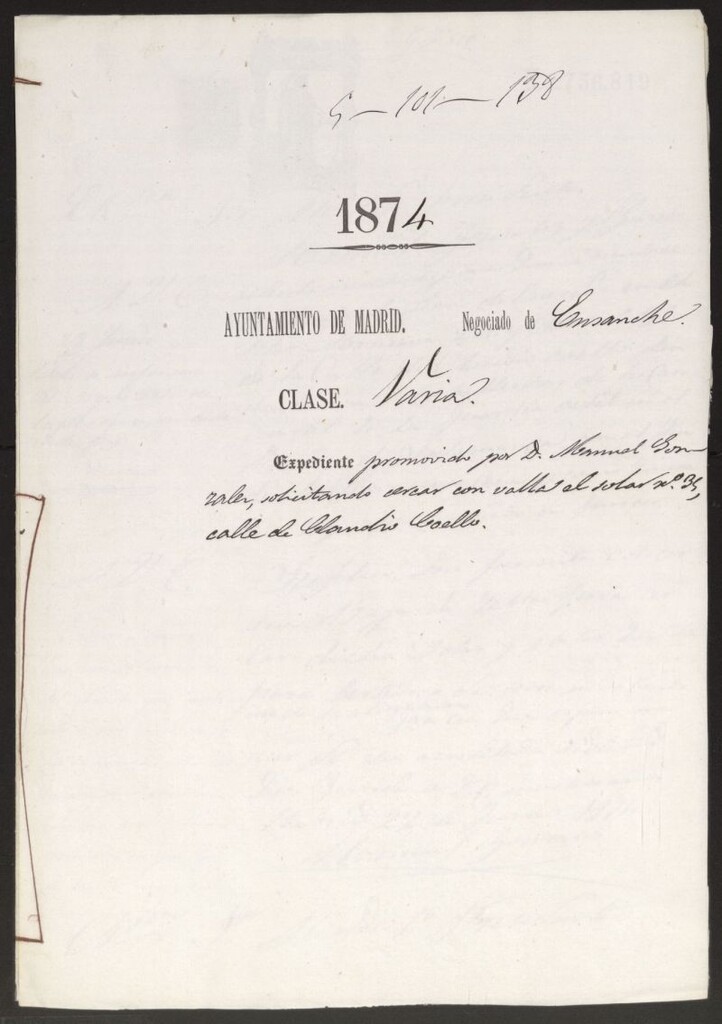 5-101-138
1874
AYUNTAMIENTO DE MADRID. Negociado de Ensanche.
CLASE. Varia.
Expediente promovido por D. Manuel Gon-
zalez, solicitando cercar con valla el solar nº 35,
calle de Claudio Coello.